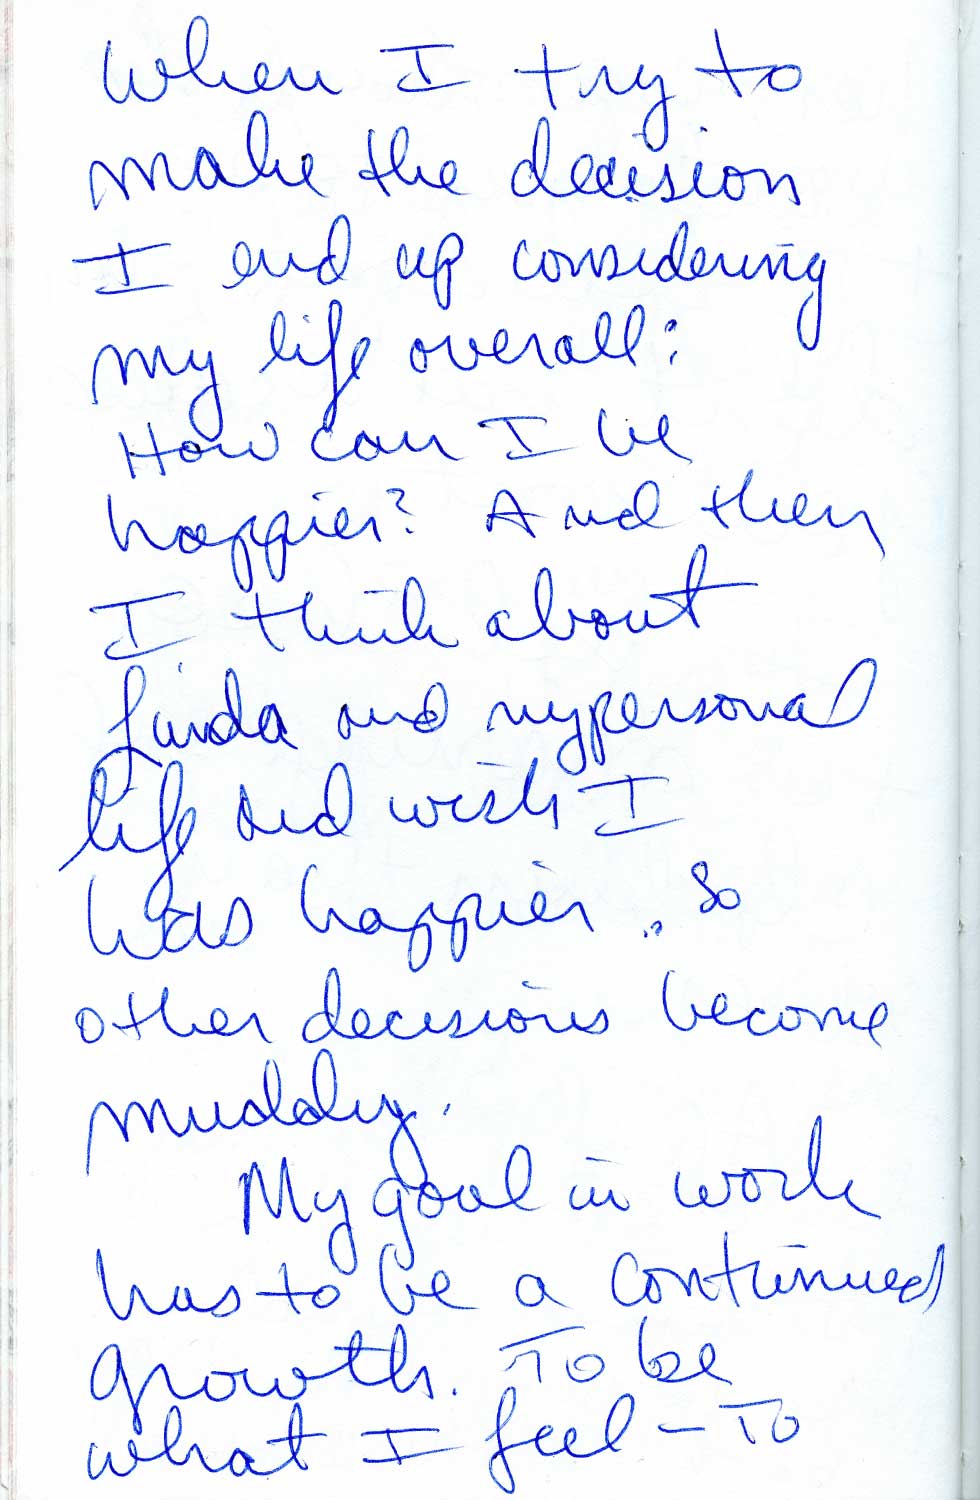 When I try to
make the decision
I end up considering
my life overall:
How can I be
happier? And then
I think about
Linda and my personal
life and wish I
was happier.. So
other decisions become
muddy.
My goal in work
has to be a continued
growth. To be
what I feel - To